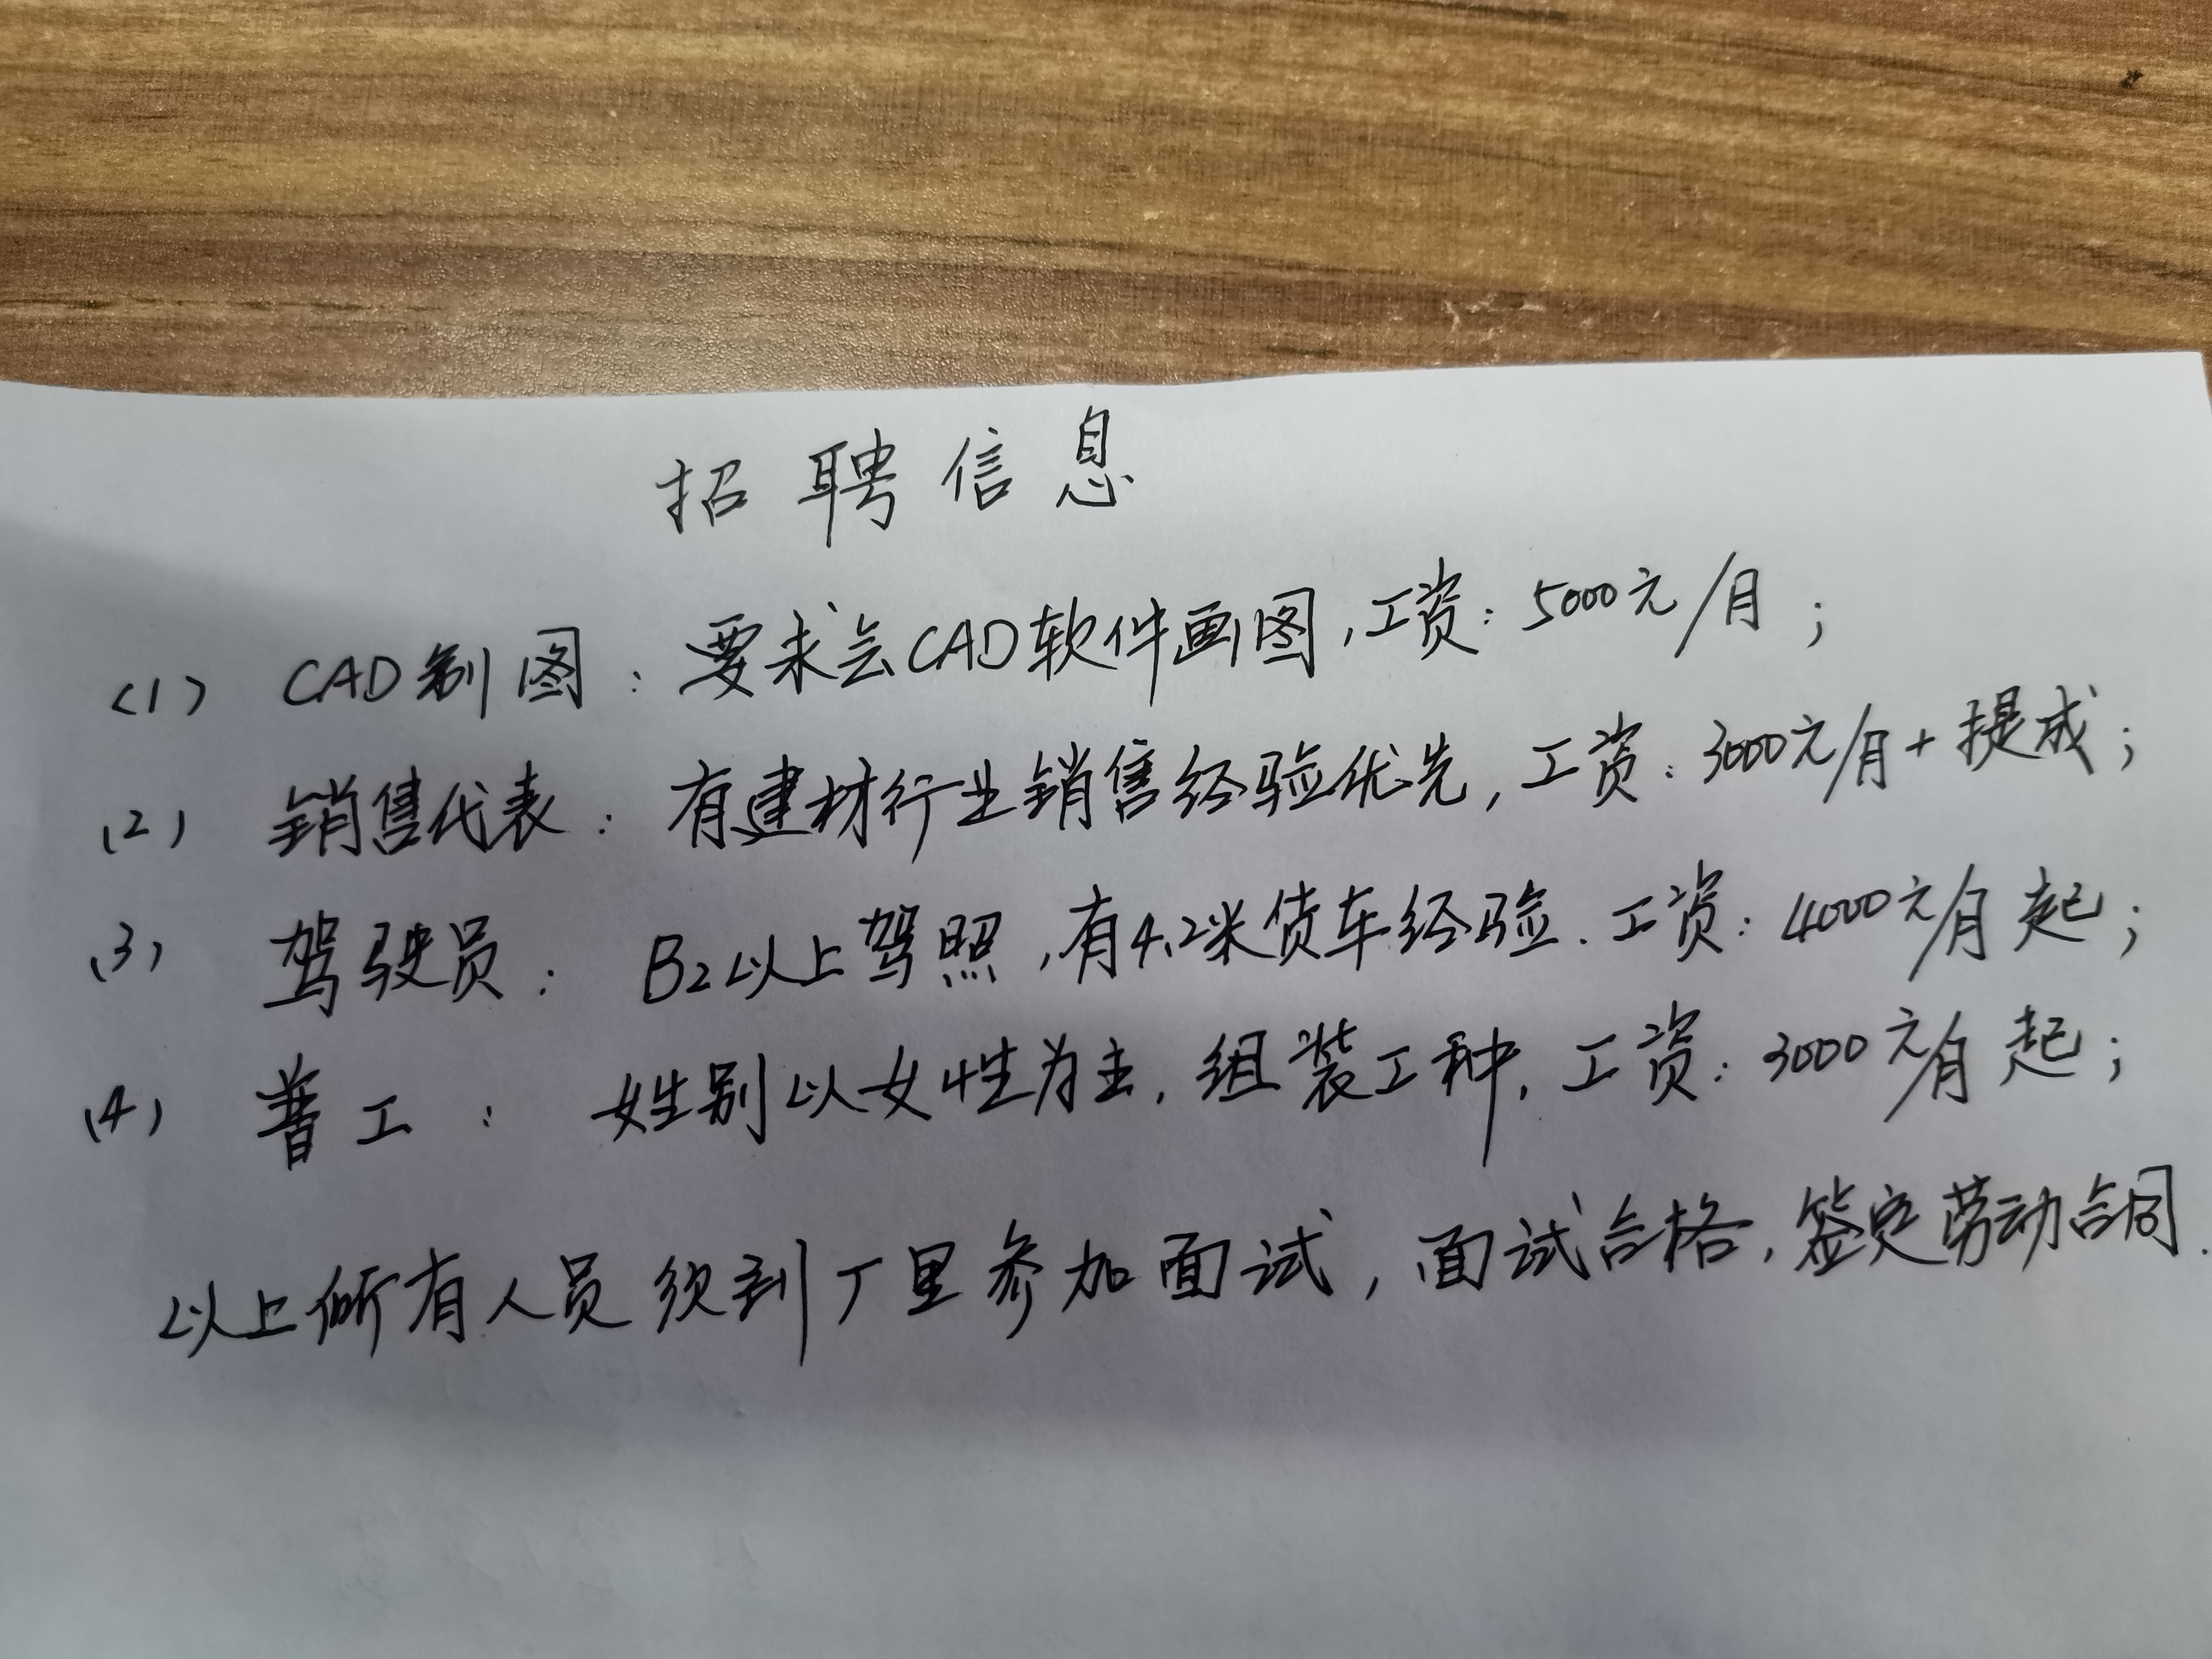 招聘信息
(1) CAD制图：要求会CAD软件画图，工资：5000元/月；
(2) 销售代表：有建材行业销售经验优先，工资：3000元/月+提成；
(3) 驾驶员：B2以上驾照，有4.2米货车经验．工资：4000元/月起；
(4) 普工：姓别以女性为主，组装工种，工资：3000元/月起；
以上所有人员须到厂里参加面试，面试合格，签定劳动合同．